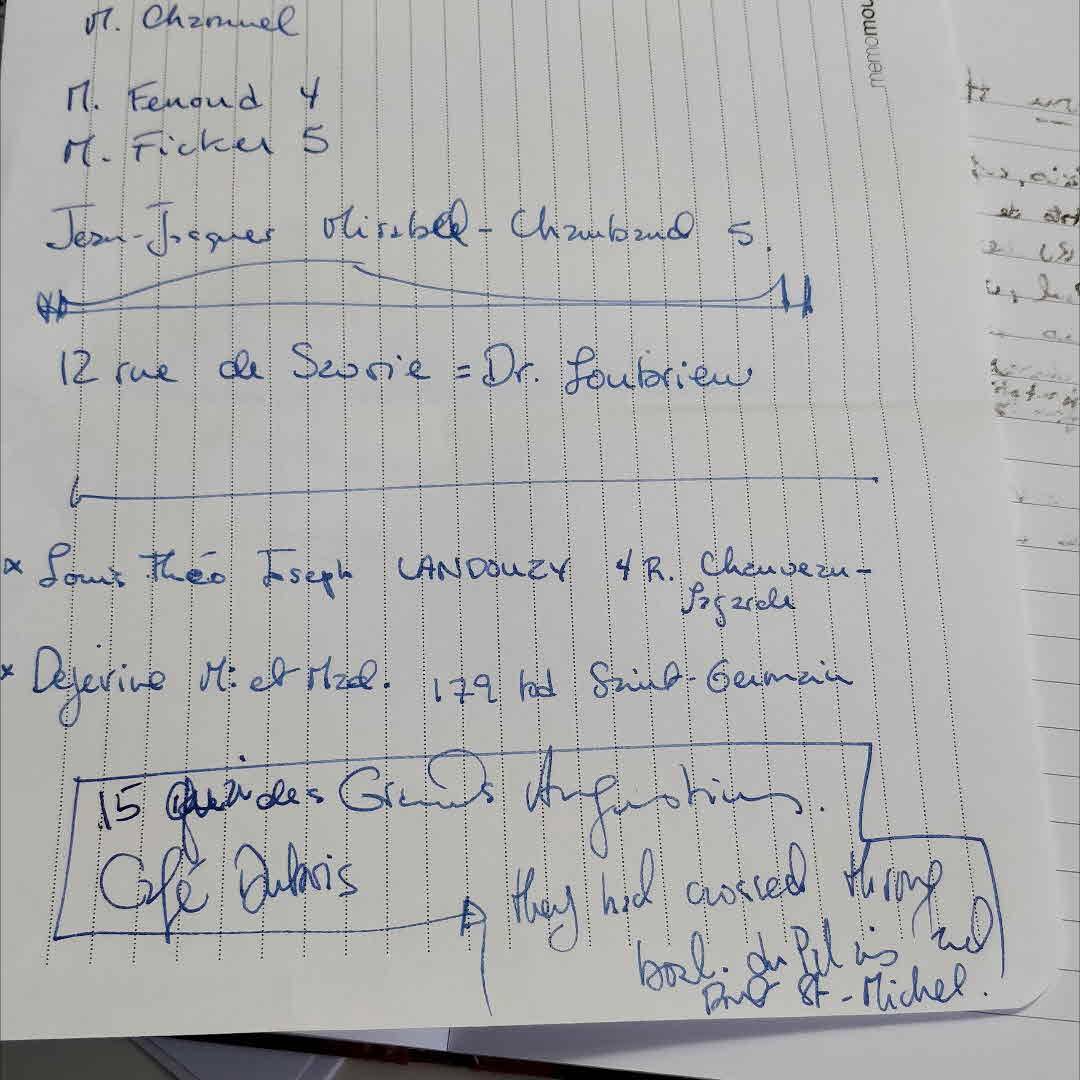 M. Charmel
memomou
M. Fenoud 4
M. Ficker 5
Jean-Jaques Mirabel-Chambaud 5.
12 rue de Savoie = Dr. Loubrieu
× Louis Théo Joseph LANDOUZY 4 R. Chauveau-
Lagarde
× Dejerine M. et Mad. 179 bd Saint-Germain
15 quai des Grands Augustins.
Café Dubois
they had crossed throug
boul. du Pal is and
Pont St-Michel.